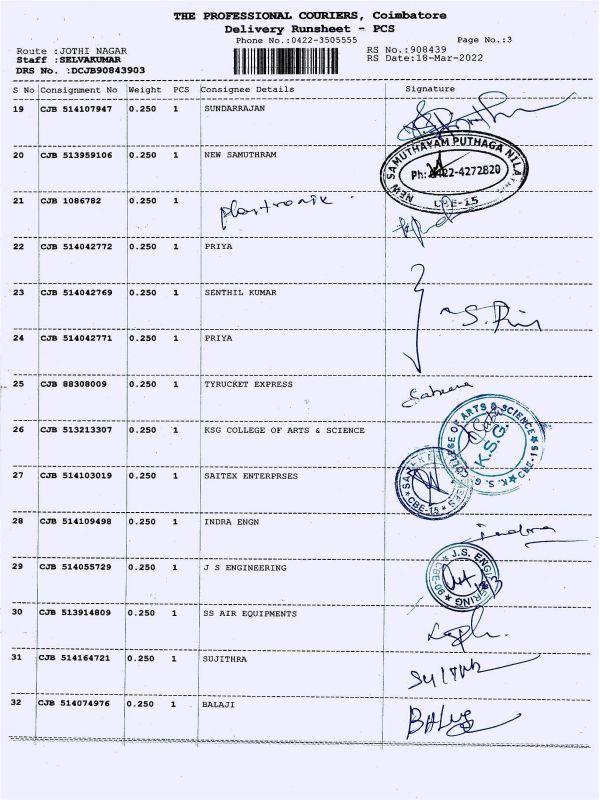 THE PROFESSIONAL COURIERS, Coimbatore
Delivery Runsheet - PCS
Phone No.:0422-3505555 Page No.:3
Route :JOTHI NAGAR RS No.:908439
Staff :SELVAKUMAR RS Date:18-Mar-2022
DRS No. :DCJB90843903
S No Consignment No Weight PCS Consignee Details Signature
19 CJB 514107947 0.250 1 SUNDARRAJAN
20 CJB 513959106 0.250 1 NEW SAMUTHRAM
NEW SAMUTHAYAM PUTHAGA NILA
Ph: 0422-4272820
CBE-15
21 CJB 1086782 0.250 1 plastronix
22 CJB 514042772 0.250 1 PRIYA
23 CJB 514042769 0.250 1 SENTHIL KUMAR
24 CJB 514042771 0.250 1 PRIYA
25 CJB 88308009 0.250 1 TYRUCKET EXPRESS
26 CJB 513213307 0.250 1 KSG COLLEGE OF ARTS & SCIENCE
COLLEGE OF ARTS & SCIENCE
K.S.G.
CBE-15
27 CJB 514103019 0.250 1 SAITEX ENTERPRSES
CBE-15
28 CJB 514109498 0.250 1 INDRA ENGN Indra
29 CJB 514055729 0.250 1 J S ENGINEERING
J.S. ENGINEERING
30 CJB 513914809 0.250 1 SS AIR EQUIPMENTS
31 CJB 514164721 0.250 1 SUJITHRA
32 CJB 514074976 0.250 1 BALAJI